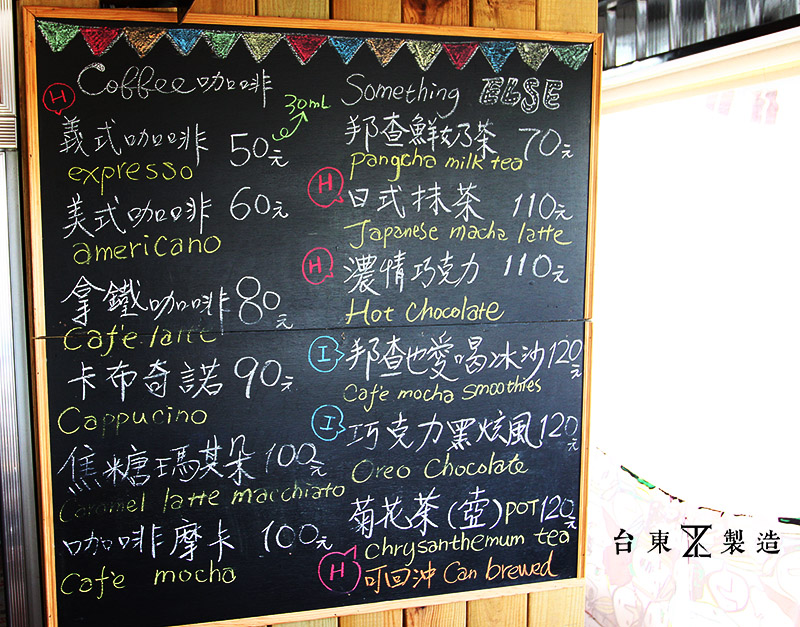 Coffee 咖啡
H
義式咖啡 50元
30mL
expresso
美式咖啡 60元
americano
拿鐵咖啡 80元
Cafe latte
卡布奇諾 90元
Cappucino
焦糖瑪其朵 100元
Caramel latte macchiato
咖啡摩卡 100元
Cafe mocha
Something ELSE
邦查鮮奶茶 70元
pangcha milk tea
H 日式抹茶 110元
Japanese macha latte
H 濃情巧克力 110元
Hot chocolate
I 邦查也愛喝冰沙 120元
Cafe mocha smoothies
I 巧克力黑炫風 120元
Oreo Chocolate
菊花茶(壺) POT 120元
chrysanthemum tea
H 可回沖 Can brewed
台東製造